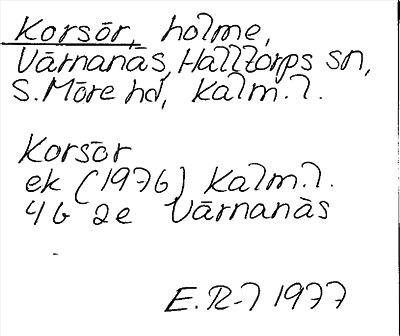 Korsör, holme,
Värnanäs, Halltorps sn,
S. Möre hd, Kalm. l.
Korsör
ek (1976) Kalm. l.
4G 2e Värnanäs
E. R-l 1977